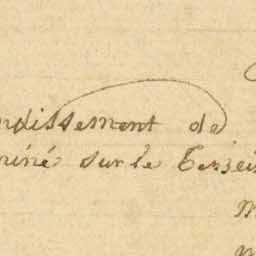 ndissement de
miné sur le Terzei
m